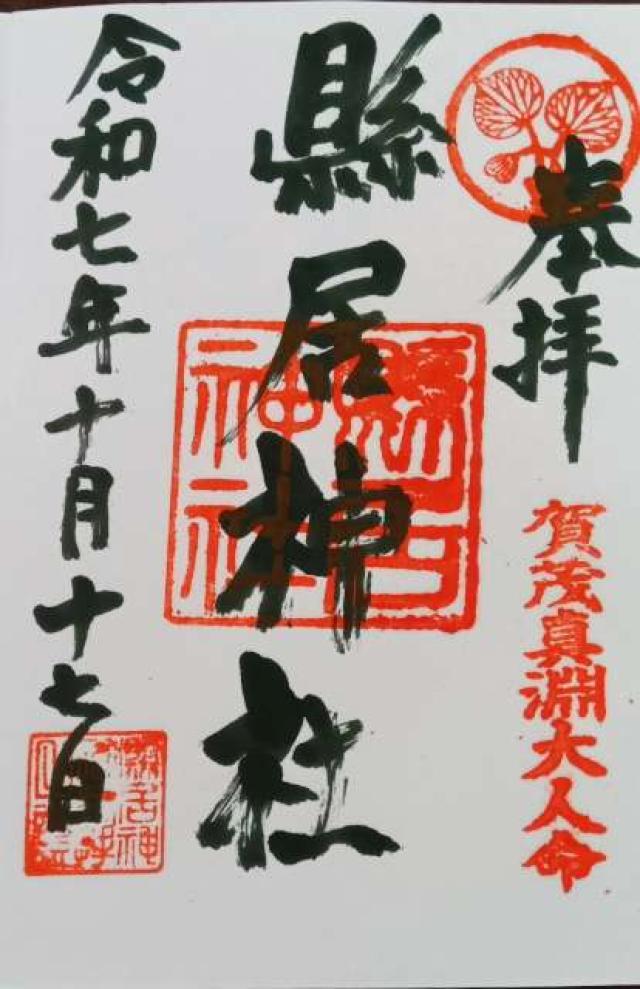 奉拝
賀茂真淵大人命
縣居神社
縣居神社
令和七年十月十七日